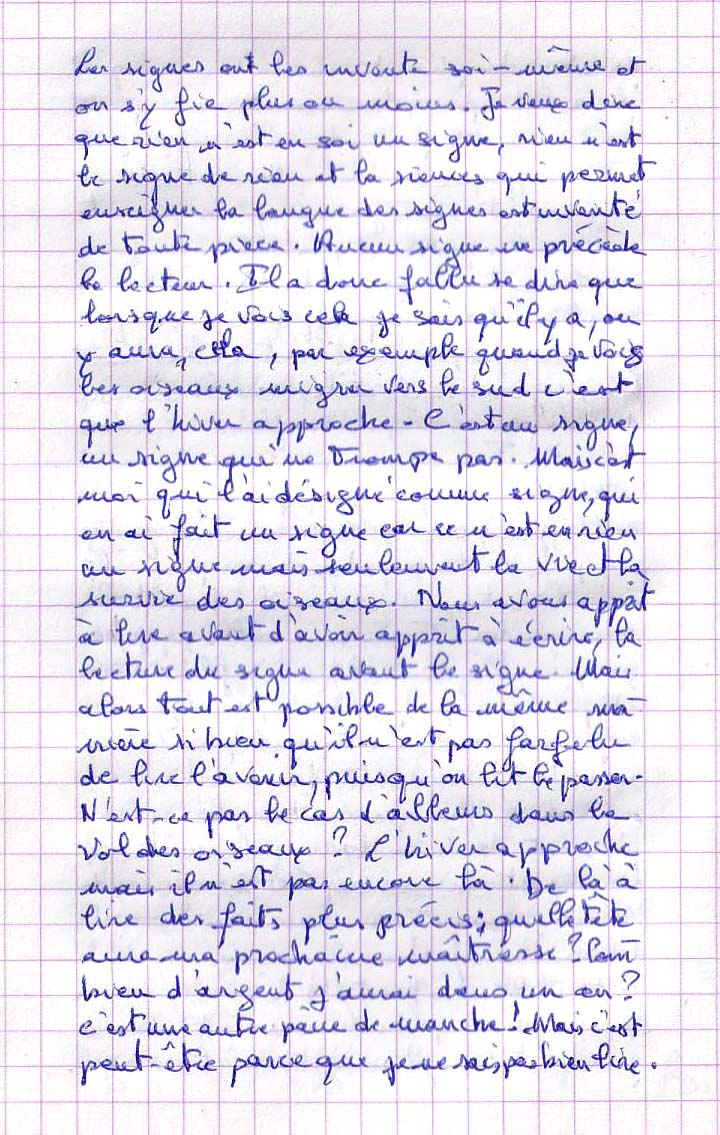 Les signes ont les invente soi-même et
on s'y fie plus ou moins. Je veux dire
que rien n'est en soi un signe, rien n'est
le signe de rien et la siences qui permet
enseigner la langue des signes est inventé
de toute piece. Aucun signe ne précède
le lecteur. Il a donc fallu se dire que
lorsque je vois cela je sais qu'il y a, ou
y aura, cela, par exemple quand je vois
les oiseaux migrer vers le sud c'est
que l'hiver approche - C'est un signe,
un signe qui ne trompe pas. Mais c'est
moi qui l'ai désigné comme signe, qui
en ai fait un signe car ce n'est en rien
un signe mais seulement la vie et la
survie des oiseaux. Nous avons apprit
à lire avant d'avoir apprit à écrire, la
lecture du signe avant le signe. Mais
alors tout est possible de la même ma-
nière si bien qu'il n'est pas farfelu
de lire l'avenir, puisqu'on lit le passer.
N'est-ce pas le cas d'ailleurs dans le
vol des oiseaux ? L'hiver approche
mais il n'est pas encore là. De là à
lire des faits plus précis ; quelle tête
aura ma prochaine maîtresse ? Com-
bien d'argent j'aurai dans un an ?
c'est une autre paire de manche ! Mais c'est
peut-être parce que je ne sais pas bien lire.